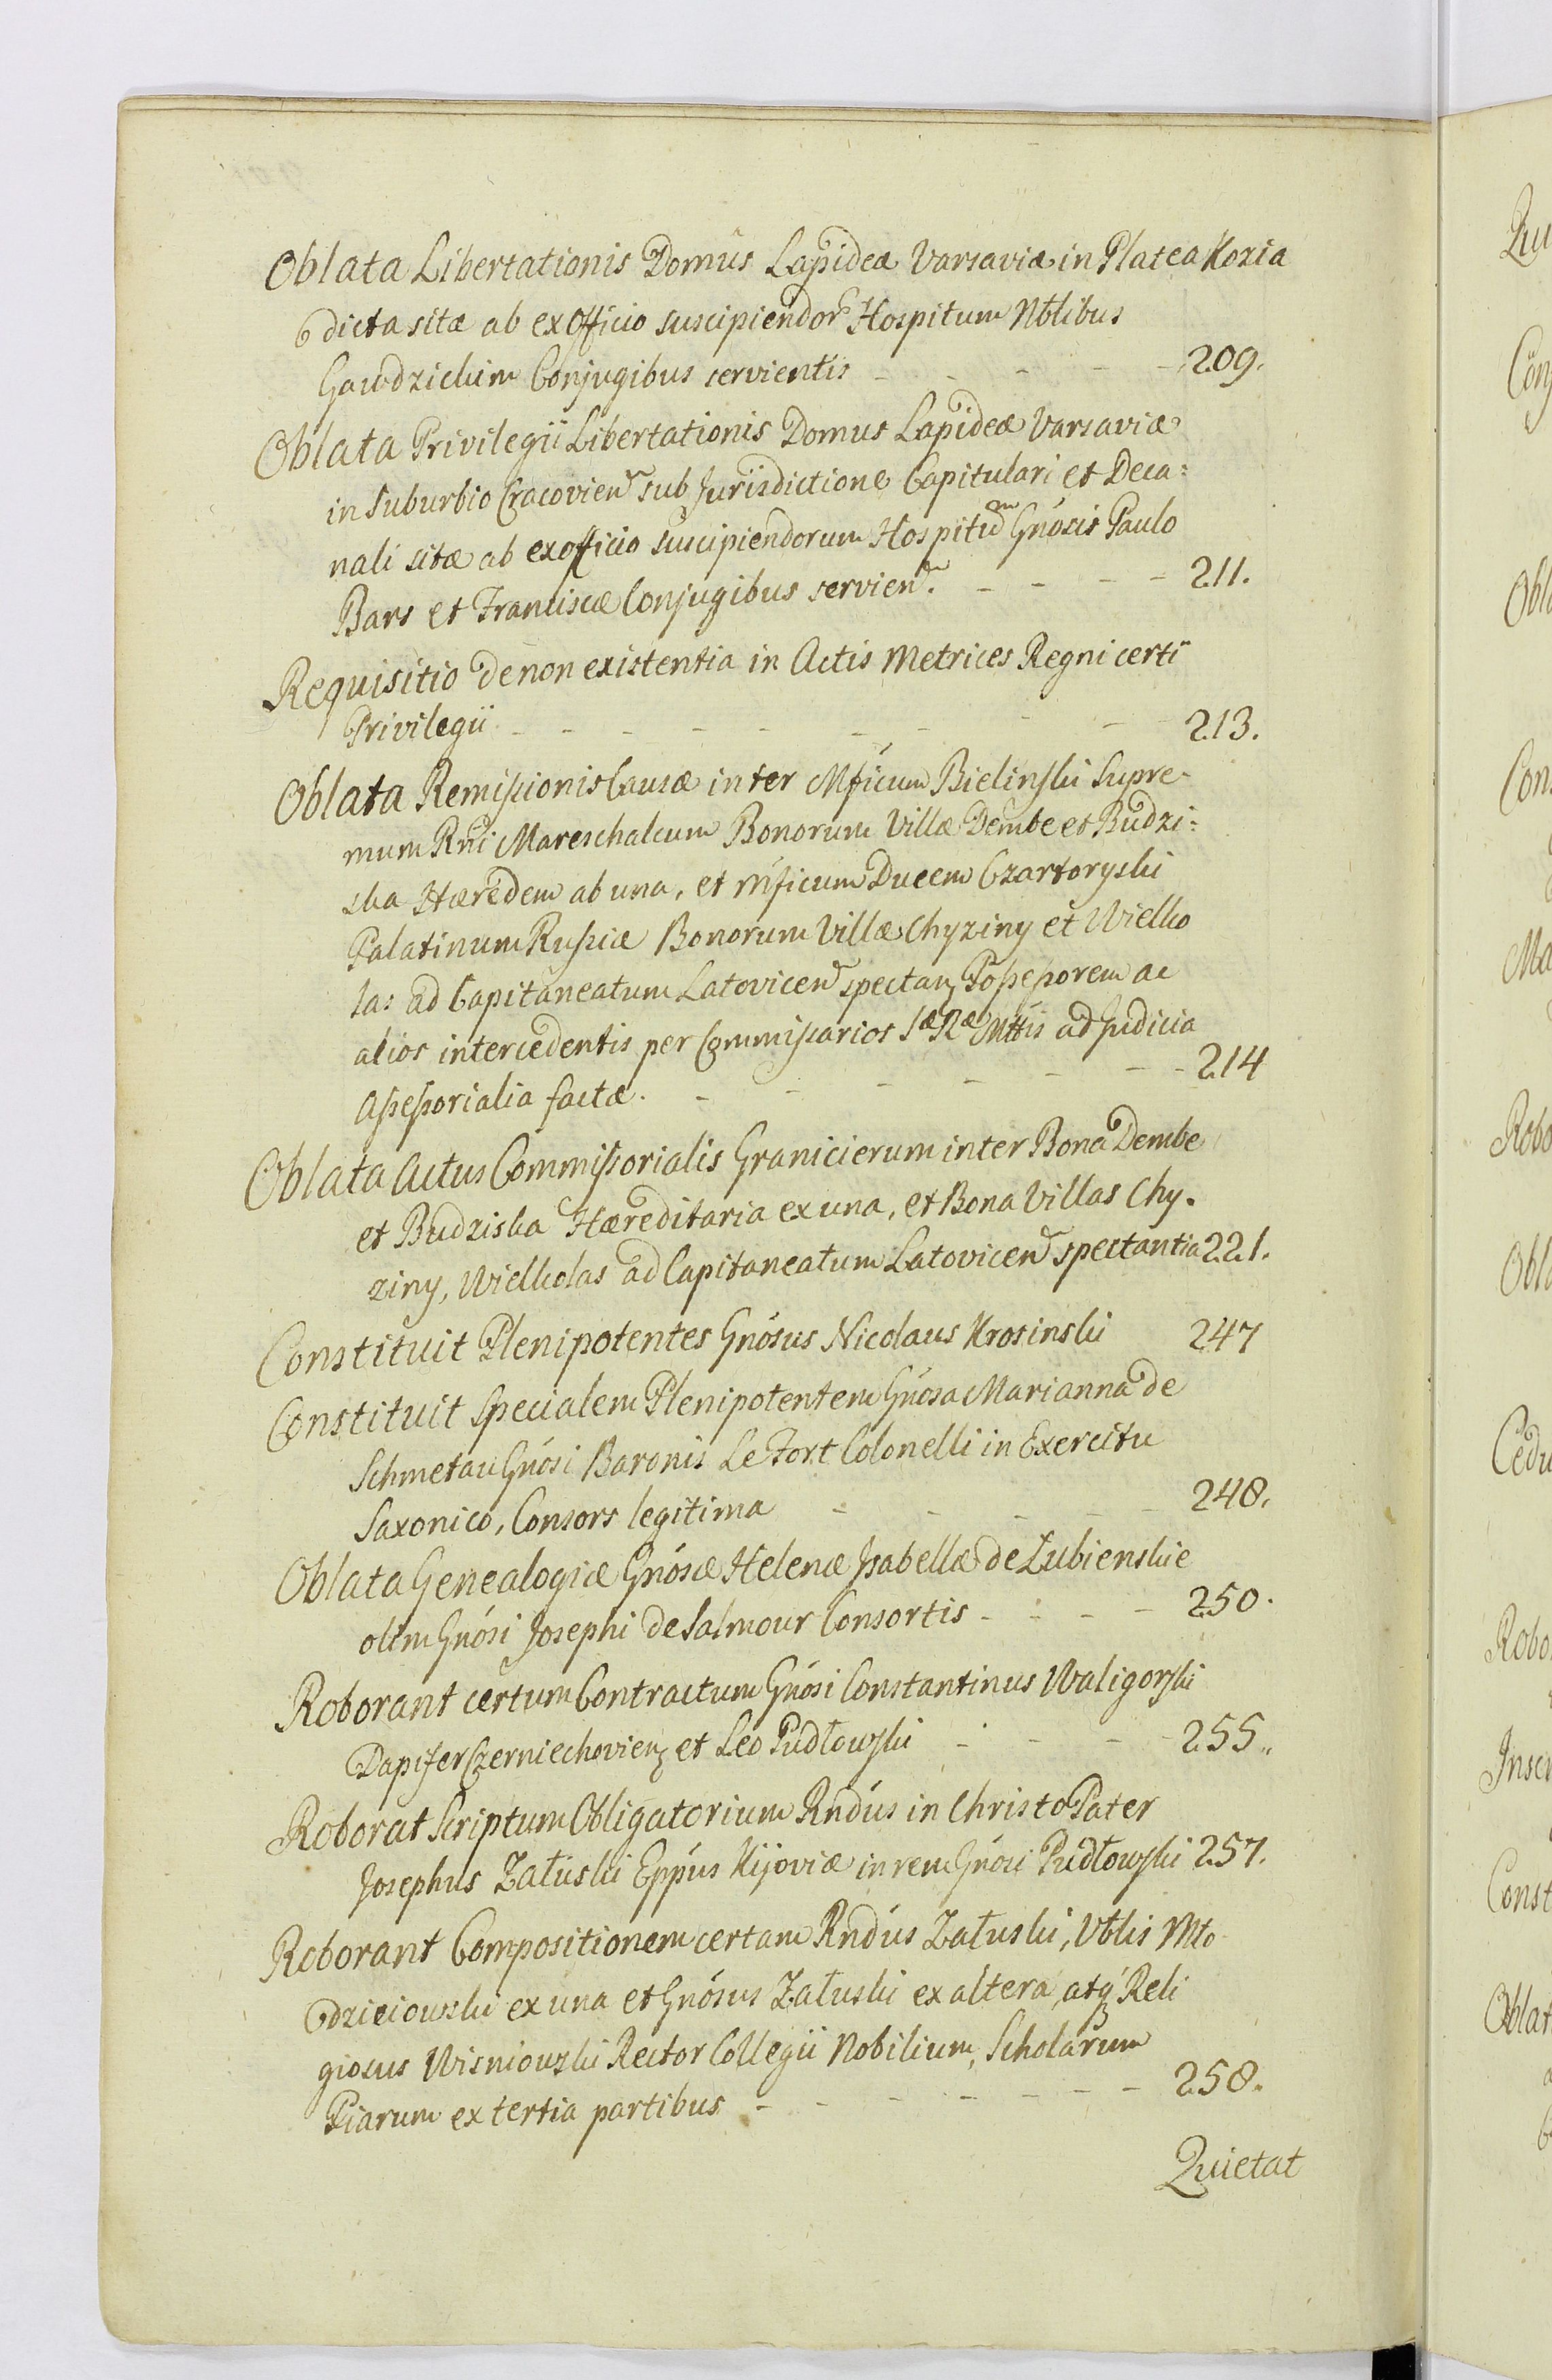 Oblata Libertationis Domus Lapideæ Varsaviæ in Platea Kozia
dicta sitæ ab ex Officio suscipiendor Hospitum Nblibus
Gawdzickim Conjugibus servientis - - - - 209.
Oblata Privilegii Libertationis Domus Lapideæ Varsaviæ
in Suburbio Cracovien sub Jurisdictione Capitulari et Deca:
nali sitæ ab exofficio suscipiendorum Hospitum Gnósis Paulo
Bars et Franciscæ Conjugibus servien. - - - - 211.
Requisitio de non existentia in Actis Metrices Regni certi
Privilegii - - - - - - - - 213.
Oblata Remissionis Causæ inter Mficum Bielinski Supre-
mum Rni Mareschalcum Bonorum Villæ Dembe et Budzi:
ska Hæredem ab una, et Mficum Ducem Czartoryski
Palatinum Russiæ Bonorum Villæ Chyziny et Wielko
las ad Capitaneatum Latovicen spectan Possessorem ac
alios intercedentis per Commissarios Sæ Ræ Mttis ad Judicia
Assessorialia factæ. - - - - - - 214
Oblata Actus Commissorialis Granicierum inter Bona Dembe
et Budziska Hæreditaria ex una, et Bona Villas Chy.
ziny, Wielkolas ad Capitaneatum Latovicen spectantia 221.
Constituit Plenipotentes Gnósus Nicolaus Krosinski 247
Constituit Specialem Plenipotentem Gnosa Marianna de
Schmetau Gnósi Baronis Le Fort Colonelli in Exercitu
Saxonico, Consors legitima - - - - - 248.
Oblata Genealogiæ Gnósæ Helenæ Isabellæ de Łubienskie
olim Gnósi Josephi de Salmour Consortis - - - - 250.
Roborant certum Contractum Gnósi Constantinus Waligorski
Dapifer Czerniechovien et Leo Pudłowski - - - - 255.
Roborat Scriptum Obligatorium Rndús in Christo Pater
Josephus Załuski Eppús Kijoviæ in rem Gnósi Pudłowski 257.
Roborant Compositionem certam Rndús Załuski, Vblis Mło
dzieiowski ex una et Gnósus Załuski ex altera, atq Reli
giosus Wisniowski Rector Collegii Nobilium, Scholarum
Piarum ex tertia partibus - - - - - - 258.
Quietat